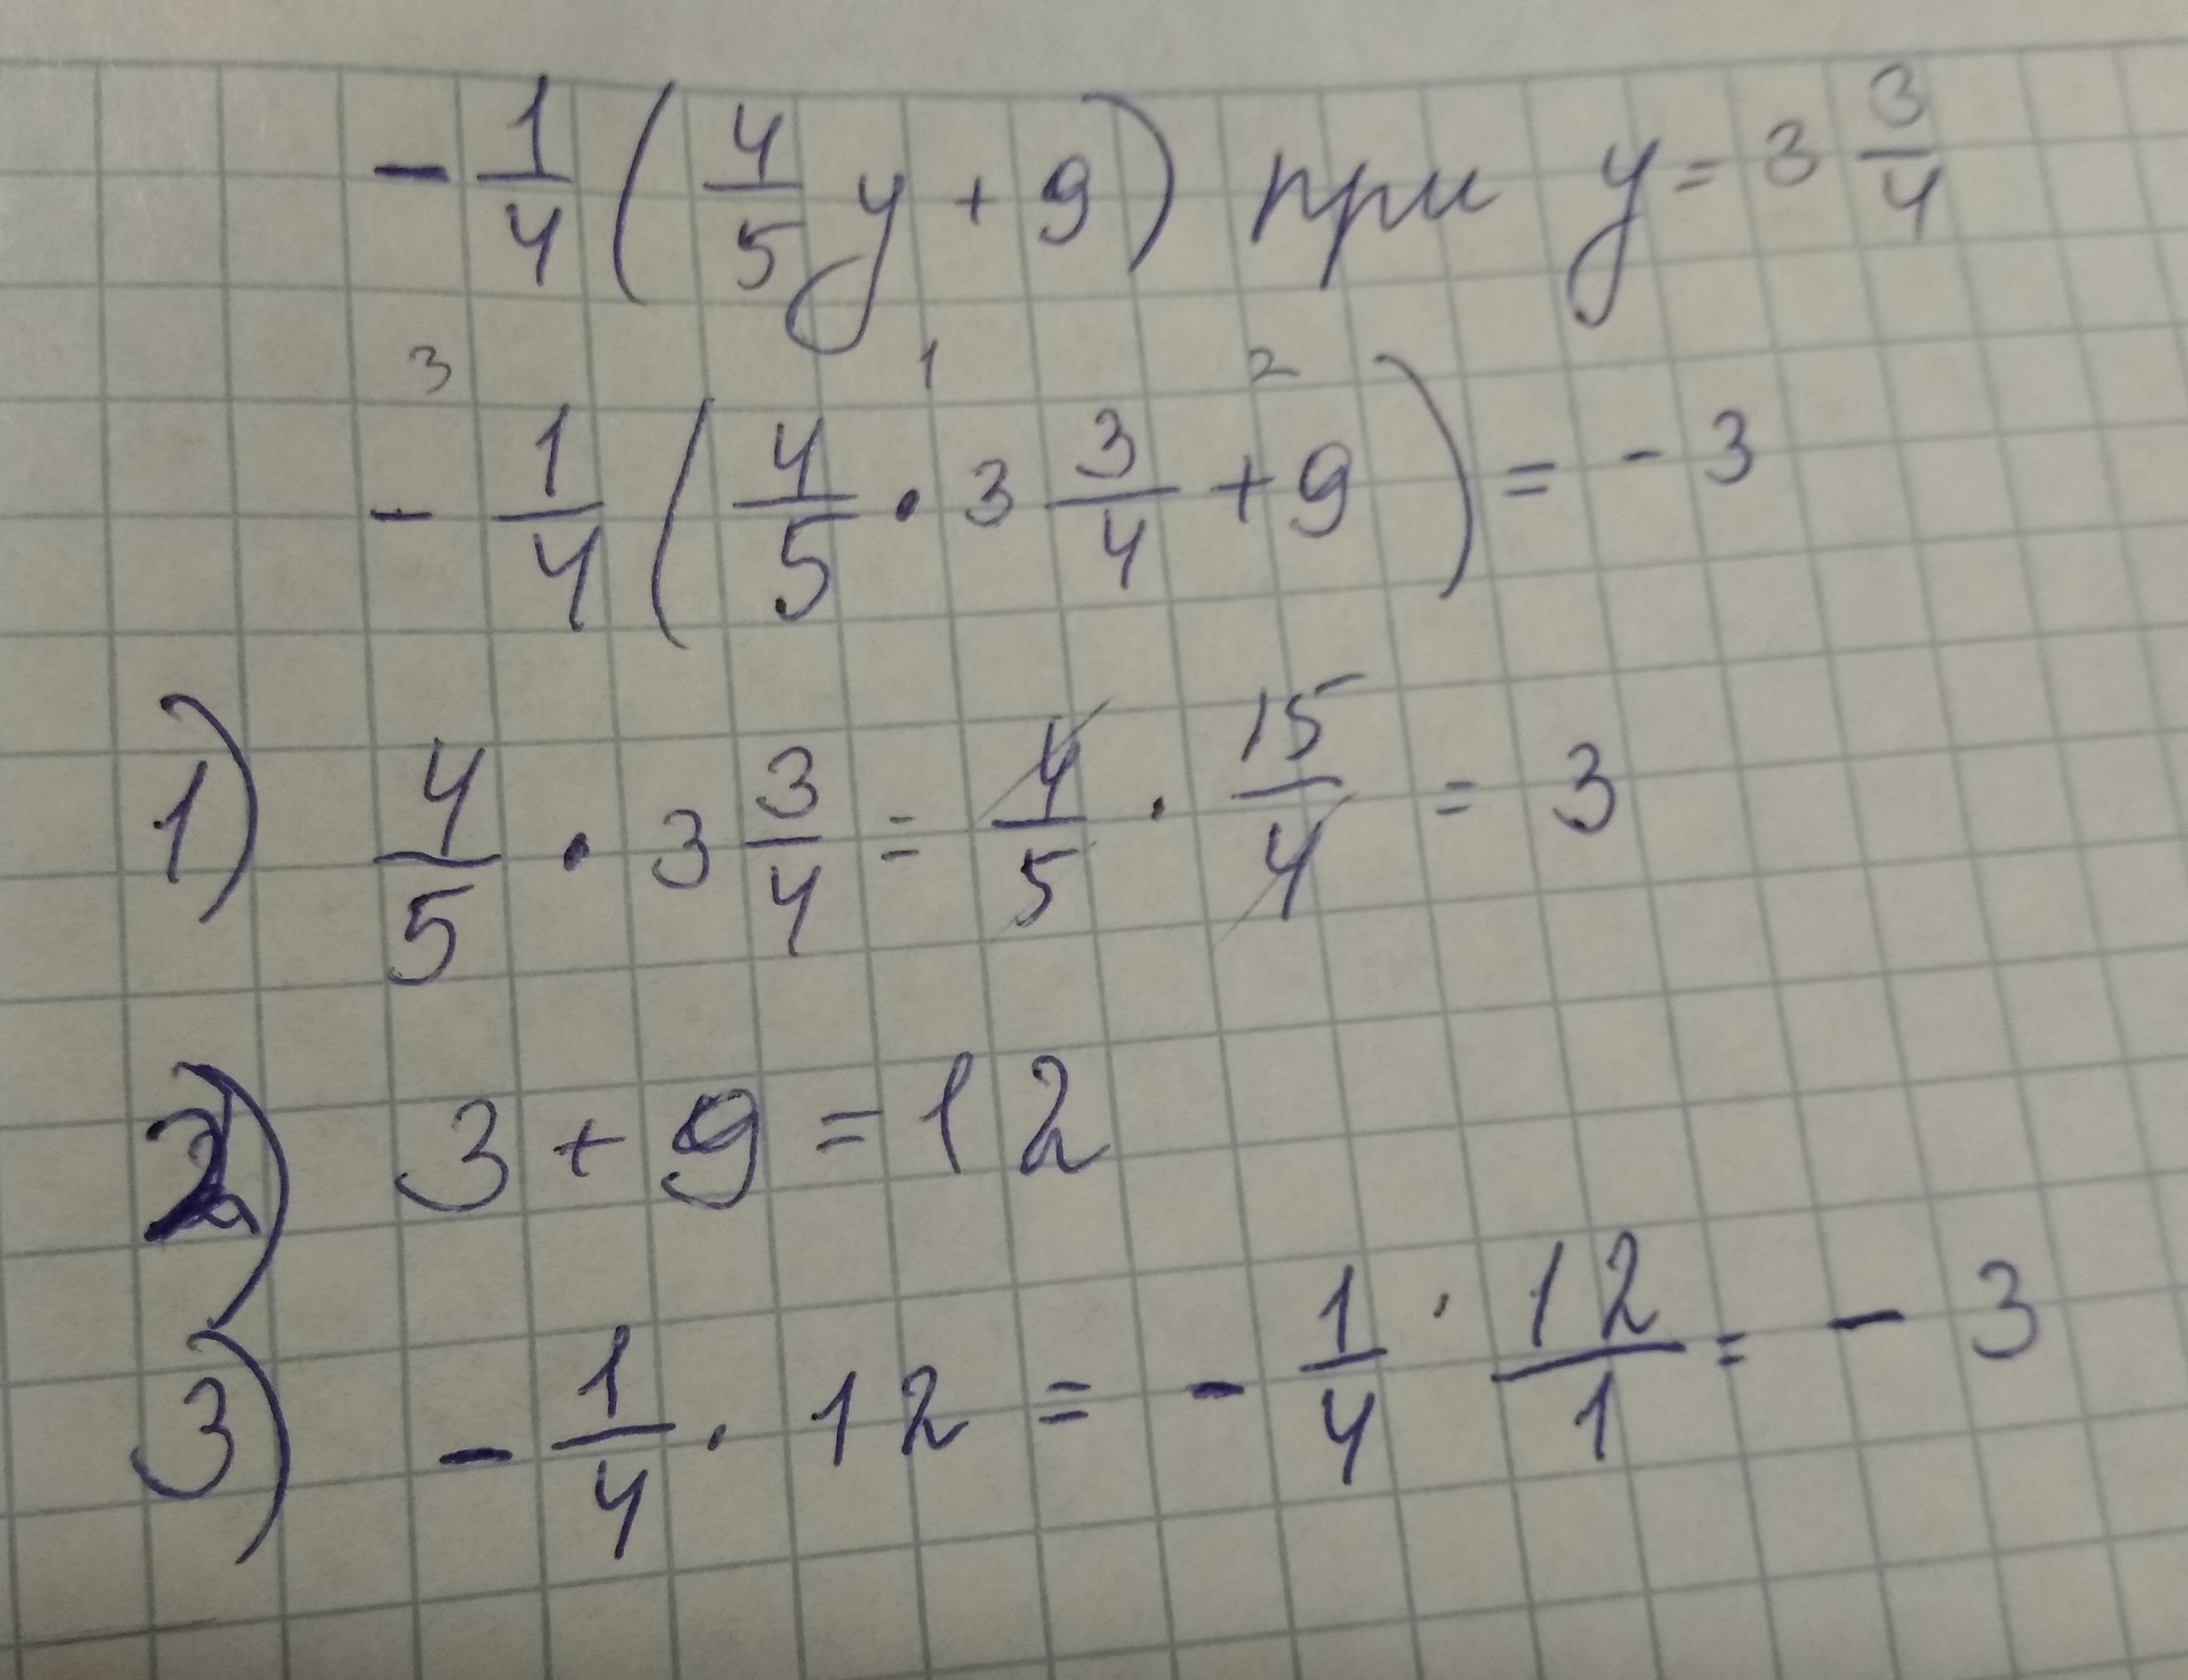 - 1/4 ( 4/5 y + 9 ) при y = 3 3/4
3 1 2
- 1/4 ( 4/5 · 3 3/4 + 9 ) = - 3
1) 4/5 · 3 3/4 = 4/5 · 15/4 = 3
2) 3 + 9 = 12
3) - 1/4 · 12 = - 1/4 · 12/1 = - 3